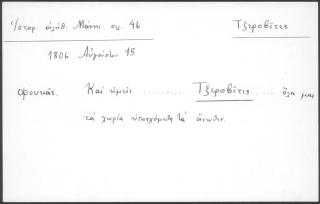 Ἱστορ. ἀλήθ. Μάνης σελ. 46
Τζεροβίτες
1806 Αὐγούστου 15.
φουκάς. Καὶ ἡμεῖς ......... Τζεροβίτες .... ὅλα μας
τὰ χωρία ὑποσχόμεθα τὰ ἄνωθεν.